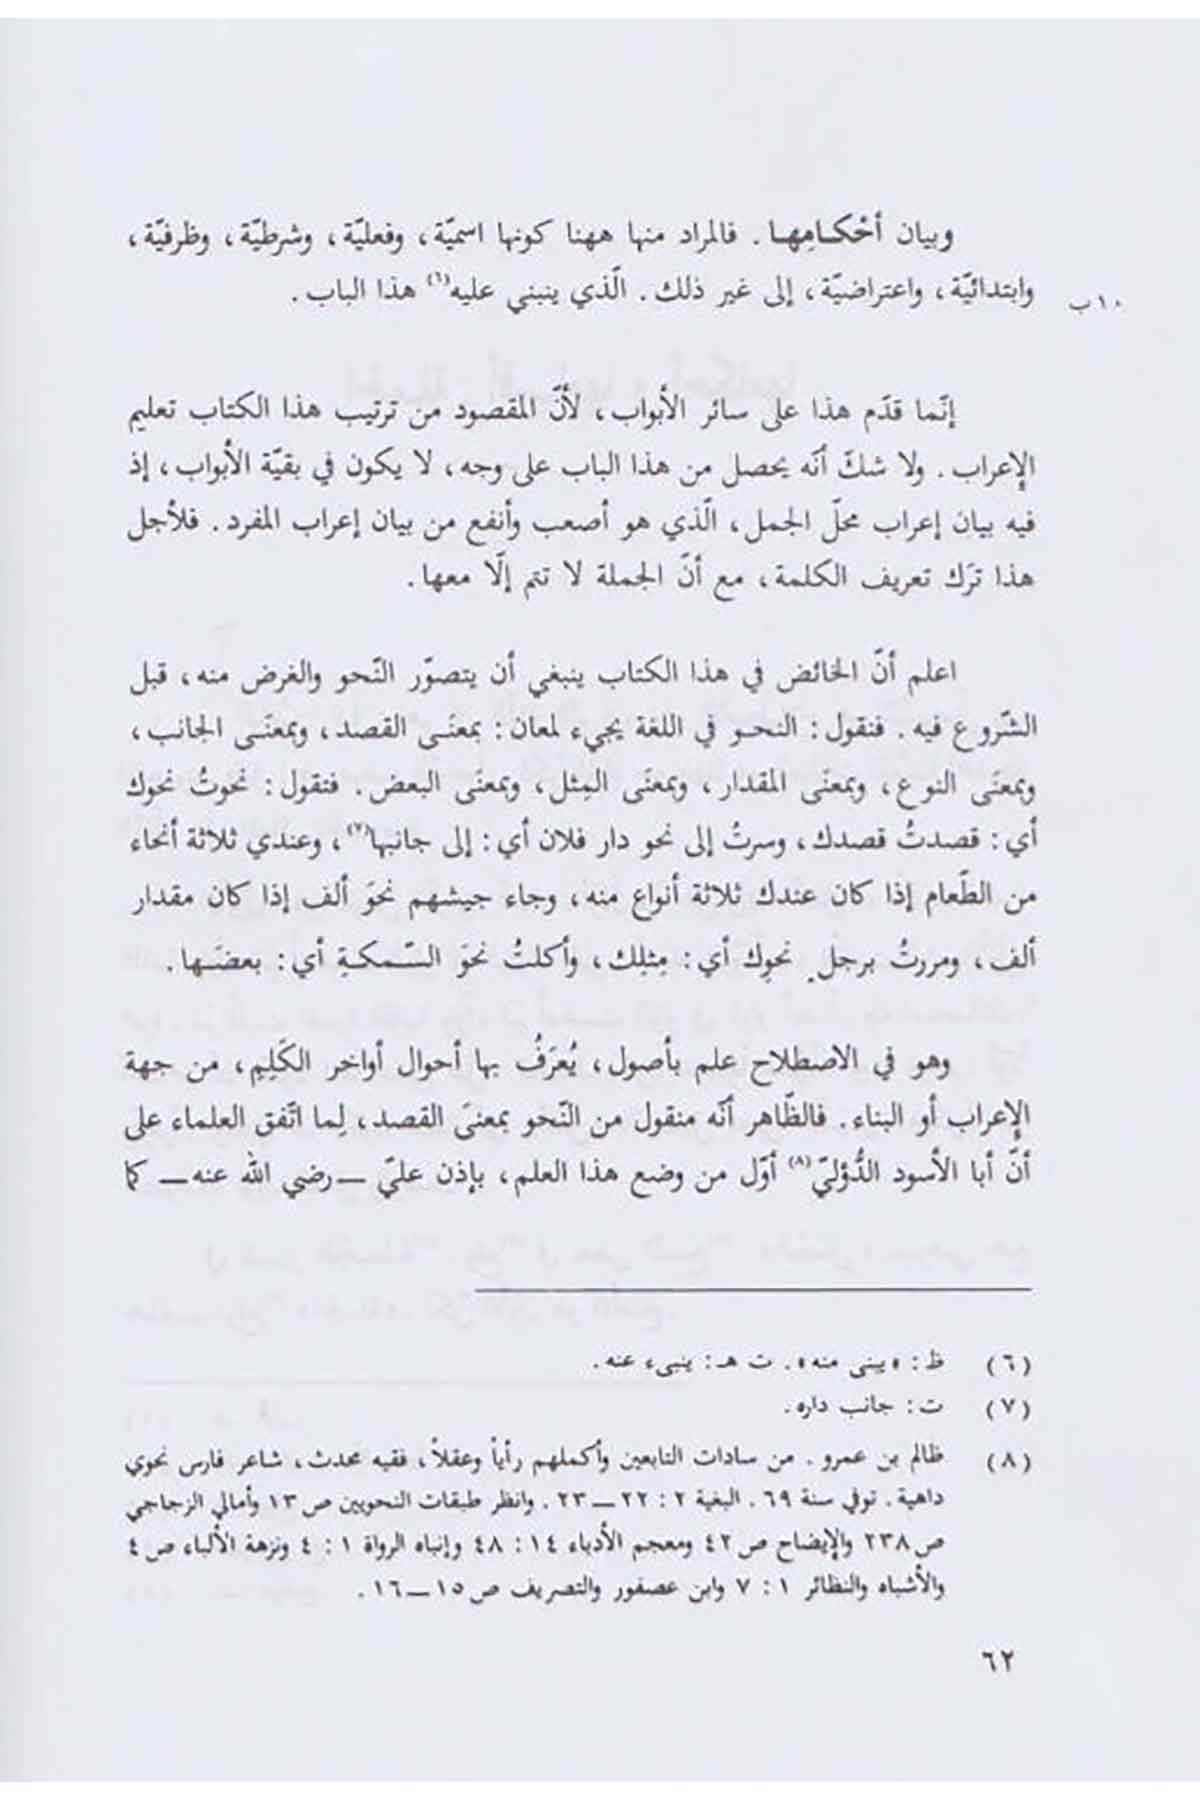 وبيان أحْكـامِهـا. فالمراد منها ههنا كونها اسميّة، وفعليّة، وشرطيّة، وظرفيّة،
وابتدائيّة، واعتراضيّة، إلى غير ذلك. الّذي ينبني عليه(٦) هذا الباب.
١٠ب
إنّما قدّم هذا على سائر الأبواب، لأنّ المقصود من ترتيب هذا الكتاب تعليم
الإعراب. ولا شكّ أنّه يحصل من هذا الباب على وجه، لا يكون في بقيّة الأبواب، إذ
فيه بيان إعراب محلّ الجمل، الّذي هو أصعب وأنفع من بيان إعراب المفرد. فلأجل
هذا ترَك تعريف الكلمة، مع أنّ الجملة لا تتم إلّا معها.
اعلم أنّ الخائض في هذا الكتاب ينبغي أن يتصوّر النّحو والغرض منه، قبل
الشّروع فيه. فنقول: النحـو في اللغة يجيء لمعان: بمعنَـى القصد، وبمعنَـى الجانب،
وبمعنَى النوع، وبمعنَى المقدار، وبمعنَى المِثل، وبمعنَى البعض. فتقول: نحوتُ نحوك
أي: قصدتُ قصدك، وسرتُ إلى نحو دار فلان أي: إلى جانبها(٧)، وعندي ثلاثة أنحاء
من الطّعام إذا كان عندك ثلاثة أنواع منه، وجاء جيشهم نحوَ ألف إذا كان مقدار
ألف، ومررتُ برجلٍ نحوِك أي: مِثلِك، وأكلتُ نحوَ السّـمكـةِ أي: بعضَـها.
وهو في الاصطلاح علم بأصول، يُعرَفُ بها أحوال أواخر الكَلِمِ، من جهة
الإعراب أو البناء. فالظّاهر أنّه منقول من النّحو بمعنَى القصد، لِما اتّفق العلماء على
أنّ أبا الأسود الدُّؤليّ(٨) أوّل من وضع هذا العلم، بإذن عليّ ــ رضي الله عنه ــ كما
(٦) ظ: «يبنى منه». ت هـ: ينبىء عنه.
(٧) ت: جانب داره.
(٨) ظالم بن عمرو. من سادات التابعين وأكملهم رأياً وعقلاً، فقيه محدث، شاعر فارس نحوي
داهية. توفي سنة ٦٩. البغية ٢: ٢٢ــ٢٣. وانظر طبقات النحويين ص ١٣ وأمالي الزجاجي
ص ٢٣٨ والإيضاح ص ٤٢ ومعجم الأدباء ١٤: ٤٨ وإنباه الرواة ١: ٤ ونزهة الألباء ص ٤
والأشباه والنظائر ١: ٧ وابن عصفور والتصريف ص ١٥ــ١٦.
٦٢